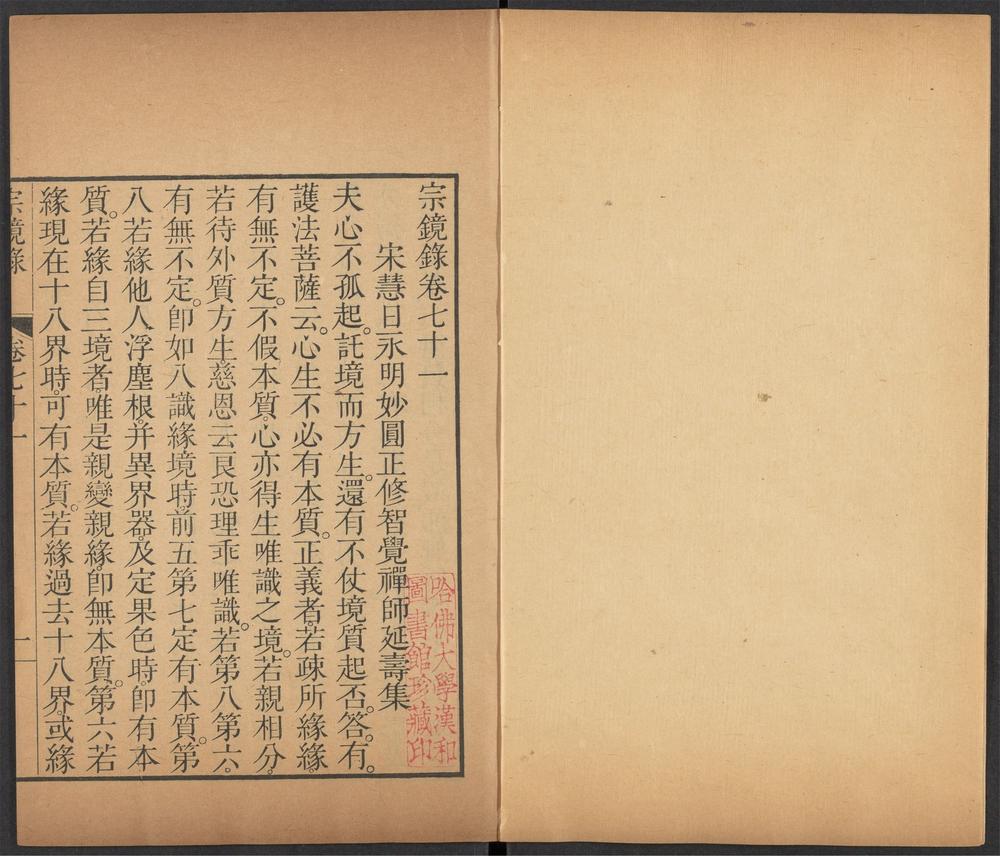 宗鏡錄卷七十一
宋慧日永明妙圓正修智覺禪師延壽集
夫心不孤起。託境而方生。還有不仗境質起否。答。有。
護法菩薩云。心生不必有本質。正義者。若疎所緣緣。
有無不定。不假本質。心亦得生唯識之境。若親相分。
若待外質方生。慈恩云。艮恐理乖唯識。若第八第六。
有無不定。卽如八識緣境時。前五第七定有本質。第
八若緣他人浮塵根。并異界器。及定果色時。卽有本
質。若緣自三境者。唯是親變親緣。卽無本質。第六若
緣現在十八界時。可有本質。若緣過去十八界。或緣
宗鏡錄 卷七十一 一
哈佛大學漢和
圖書館珍藏印